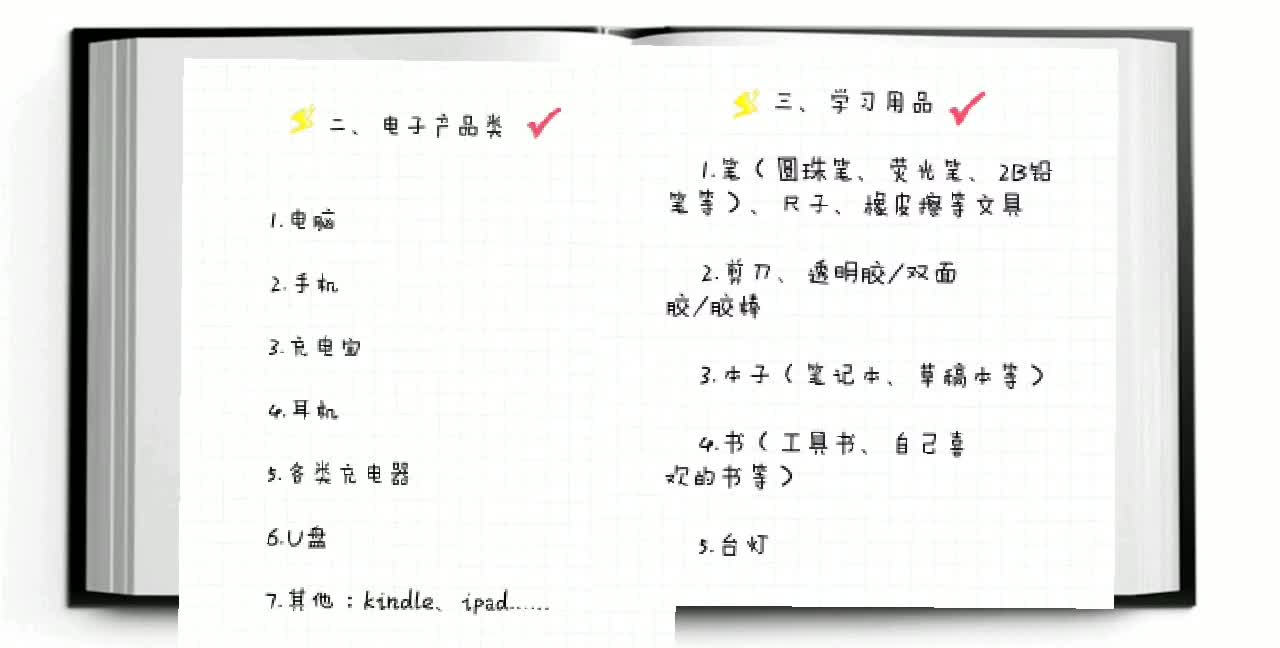 二、电子产品类
1.电脑
2.手机
3.充电宝
4.耳机
5.各类充电器
6.U盘
7.其他：kindle、ipad......
三、学习用品
1.笔（圆珠笔、荧光笔、2B铅
笔等）、尺子、橡皮擦等文具
2.剪刀、透明胶/双面
胶/胶棒
3.本子（笔记本、草稿本等）
4.书（工具书、自己喜
欢的书等）
5.台灯